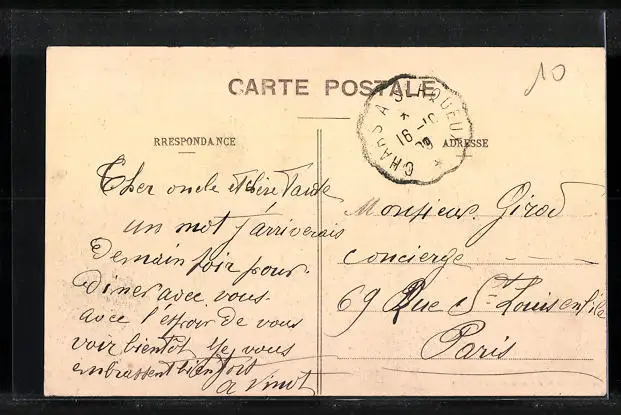 10
CARTE POSTALE
CHARS A S. RQUEUX
16 -10
09
RRESPONDANCE
ADRESSE
Cher oncle et chère Tante
un mot j'arriverais
Demain soir pour
diner avec vous
avec l'espoir de vous
voir bientot je vous
embrassent bien fort
A Vinot
Monsieur Girod
Concierge
69 Rue St Louis en file
Paris